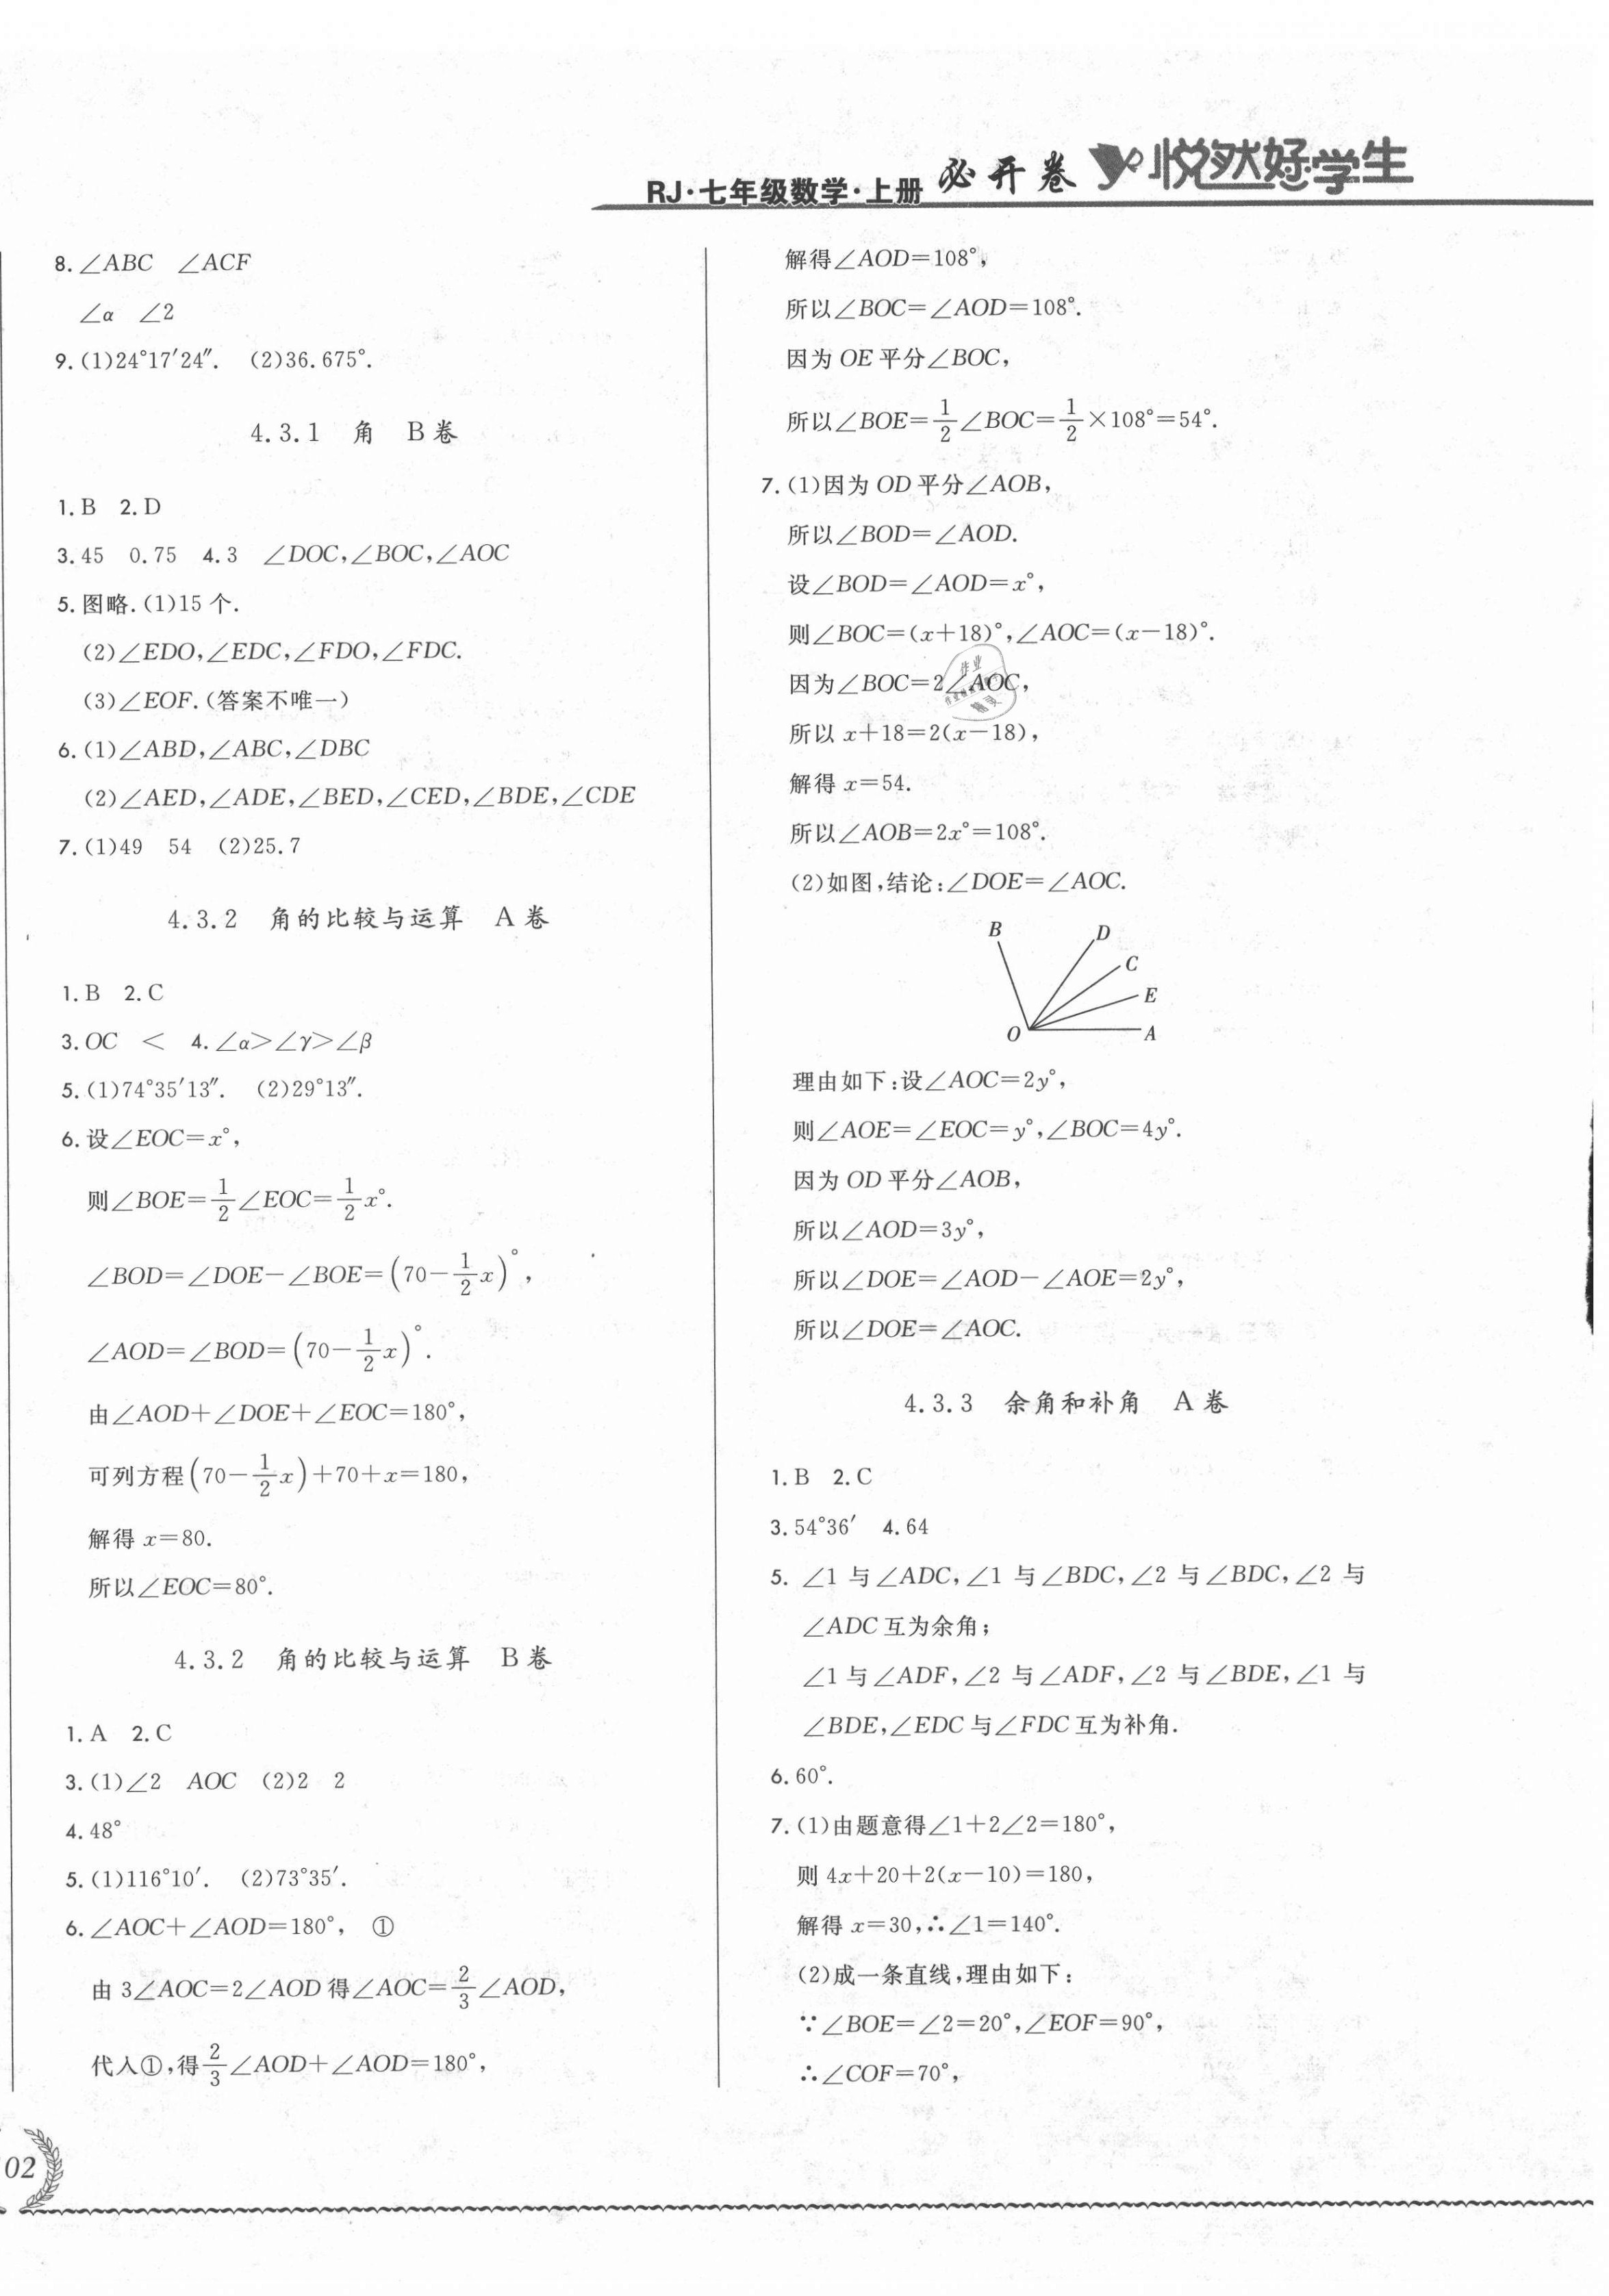 RJ·七年级数学·上册 必开卷 悦然好学生
8.∠ABC ∠ACF
∠α ∠2
9.(1)24°17′24″. (2)36.675°.
4.3.1 角 B卷
1.B 2.D
3.45 0.75 4.3 ∠DOC,∠BOC,∠AOC
5.图略.(1)15个.
(2)∠EDO,∠EDC,∠FDO,∠FDC.
(3)∠EOF.(答案不唯一)
6.(1)∠ABD,∠ABC,∠DBC
(2)∠AED,∠ADE,∠BED,∠CED,∠BDE,∠CDE
7.(1)49 54 (2)25.7
4.3.2 角的比较与运算 A卷
1.B 2.C
3.OC < 4.∠α>∠γ>∠β
5.(1)74°35′13″. (2)29°13″.
6.设∠EOC=x°,
则∠BOE=1/2∠EOC=1/2x°.
∠BOD=∠DOE-∠BOE=(70-1/2x)°,
∠AOD=∠BOD=(70-1/2x)°.
由∠AOD+∠DOE+∠EOC=180°,
可列方程(70-1/2x)+70+x=180,
解得x=80.
所以∠EOC=80°.
4.3.2 角的比较与运算 B卷
1.A 2.C
3.(1)∠2 AOC (2)2 2
4.48°
5.(1)116°10′. (2)73°35′.
6.∠AOC+∠AOD=180°, ①
由3∠AOC=2∠AOD得∠AOC=2/3∠AOD,
代入①,得2/3∠AOD+∠AOD=180°,
解得∠AOD=108°,
所以∠BOC=∠AOD=108°.
因为OE平分∠BOC,
所以∠BOE=1/2∠BOC=1/2×108°=54°.
7.(1)因为OD平分∠AOB,
所以∠BOD=∠AOD.
设∠BOD=∠AOD=x°,
则∠BOC=(x+18)°,∠AOC=(x-18)°.
因为∠BOC=2∠AOC,
所以x+18=2(x-18),
解得x=54.
所以∠AOB=2x°=108°.
(2)如图,结论:∠DOE=∠AOC.
B
D
C
E
O
A
理由如下:设∠AOC=2y°,
则∠AOE=∠EOC=y°,∠BOC=4y°.
因为OD平分∠AOB,
所以∠AOD=3y°,
所以∠DOE=∠AOD-∠AOE=2y°,
所以∠DOE=∠AOC.
4.3.3 余角和补角 A卷
1.B 2.C
3.54°36′ 4.64
5.∠1与∠ADC,∠1与∠BDC,∠2与∠BDC,∠2与
∠ADC互为余角;
∠1与∠ADF,∠2与∠ADF,∠2与∠BDE,∠1与
∠BDE,∠EDC与∠FDC互为补角.
6.60°.
7.(1)由题意得∠1+2∠2=180°,
则4x+20+2(x-10)=180,
解得x=30,∴∠1=140°.
(2)成一条直线,理由如下:
∵∠BOE=∠2=20°,∠EOF=90°,
∴∠COF=70°,
02